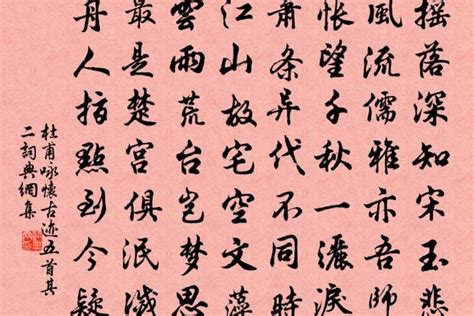 搖落深知宋玉悲
風流儒雅亦吾師
悵望千秋一灑淚
蕭條异代不同時
江山故宅空文藻
雲雨荒台豈夢思
最是楚宮俱泯滅
舟人指點到今疑
杜甫咏懷古迹五首其
二詞典網集